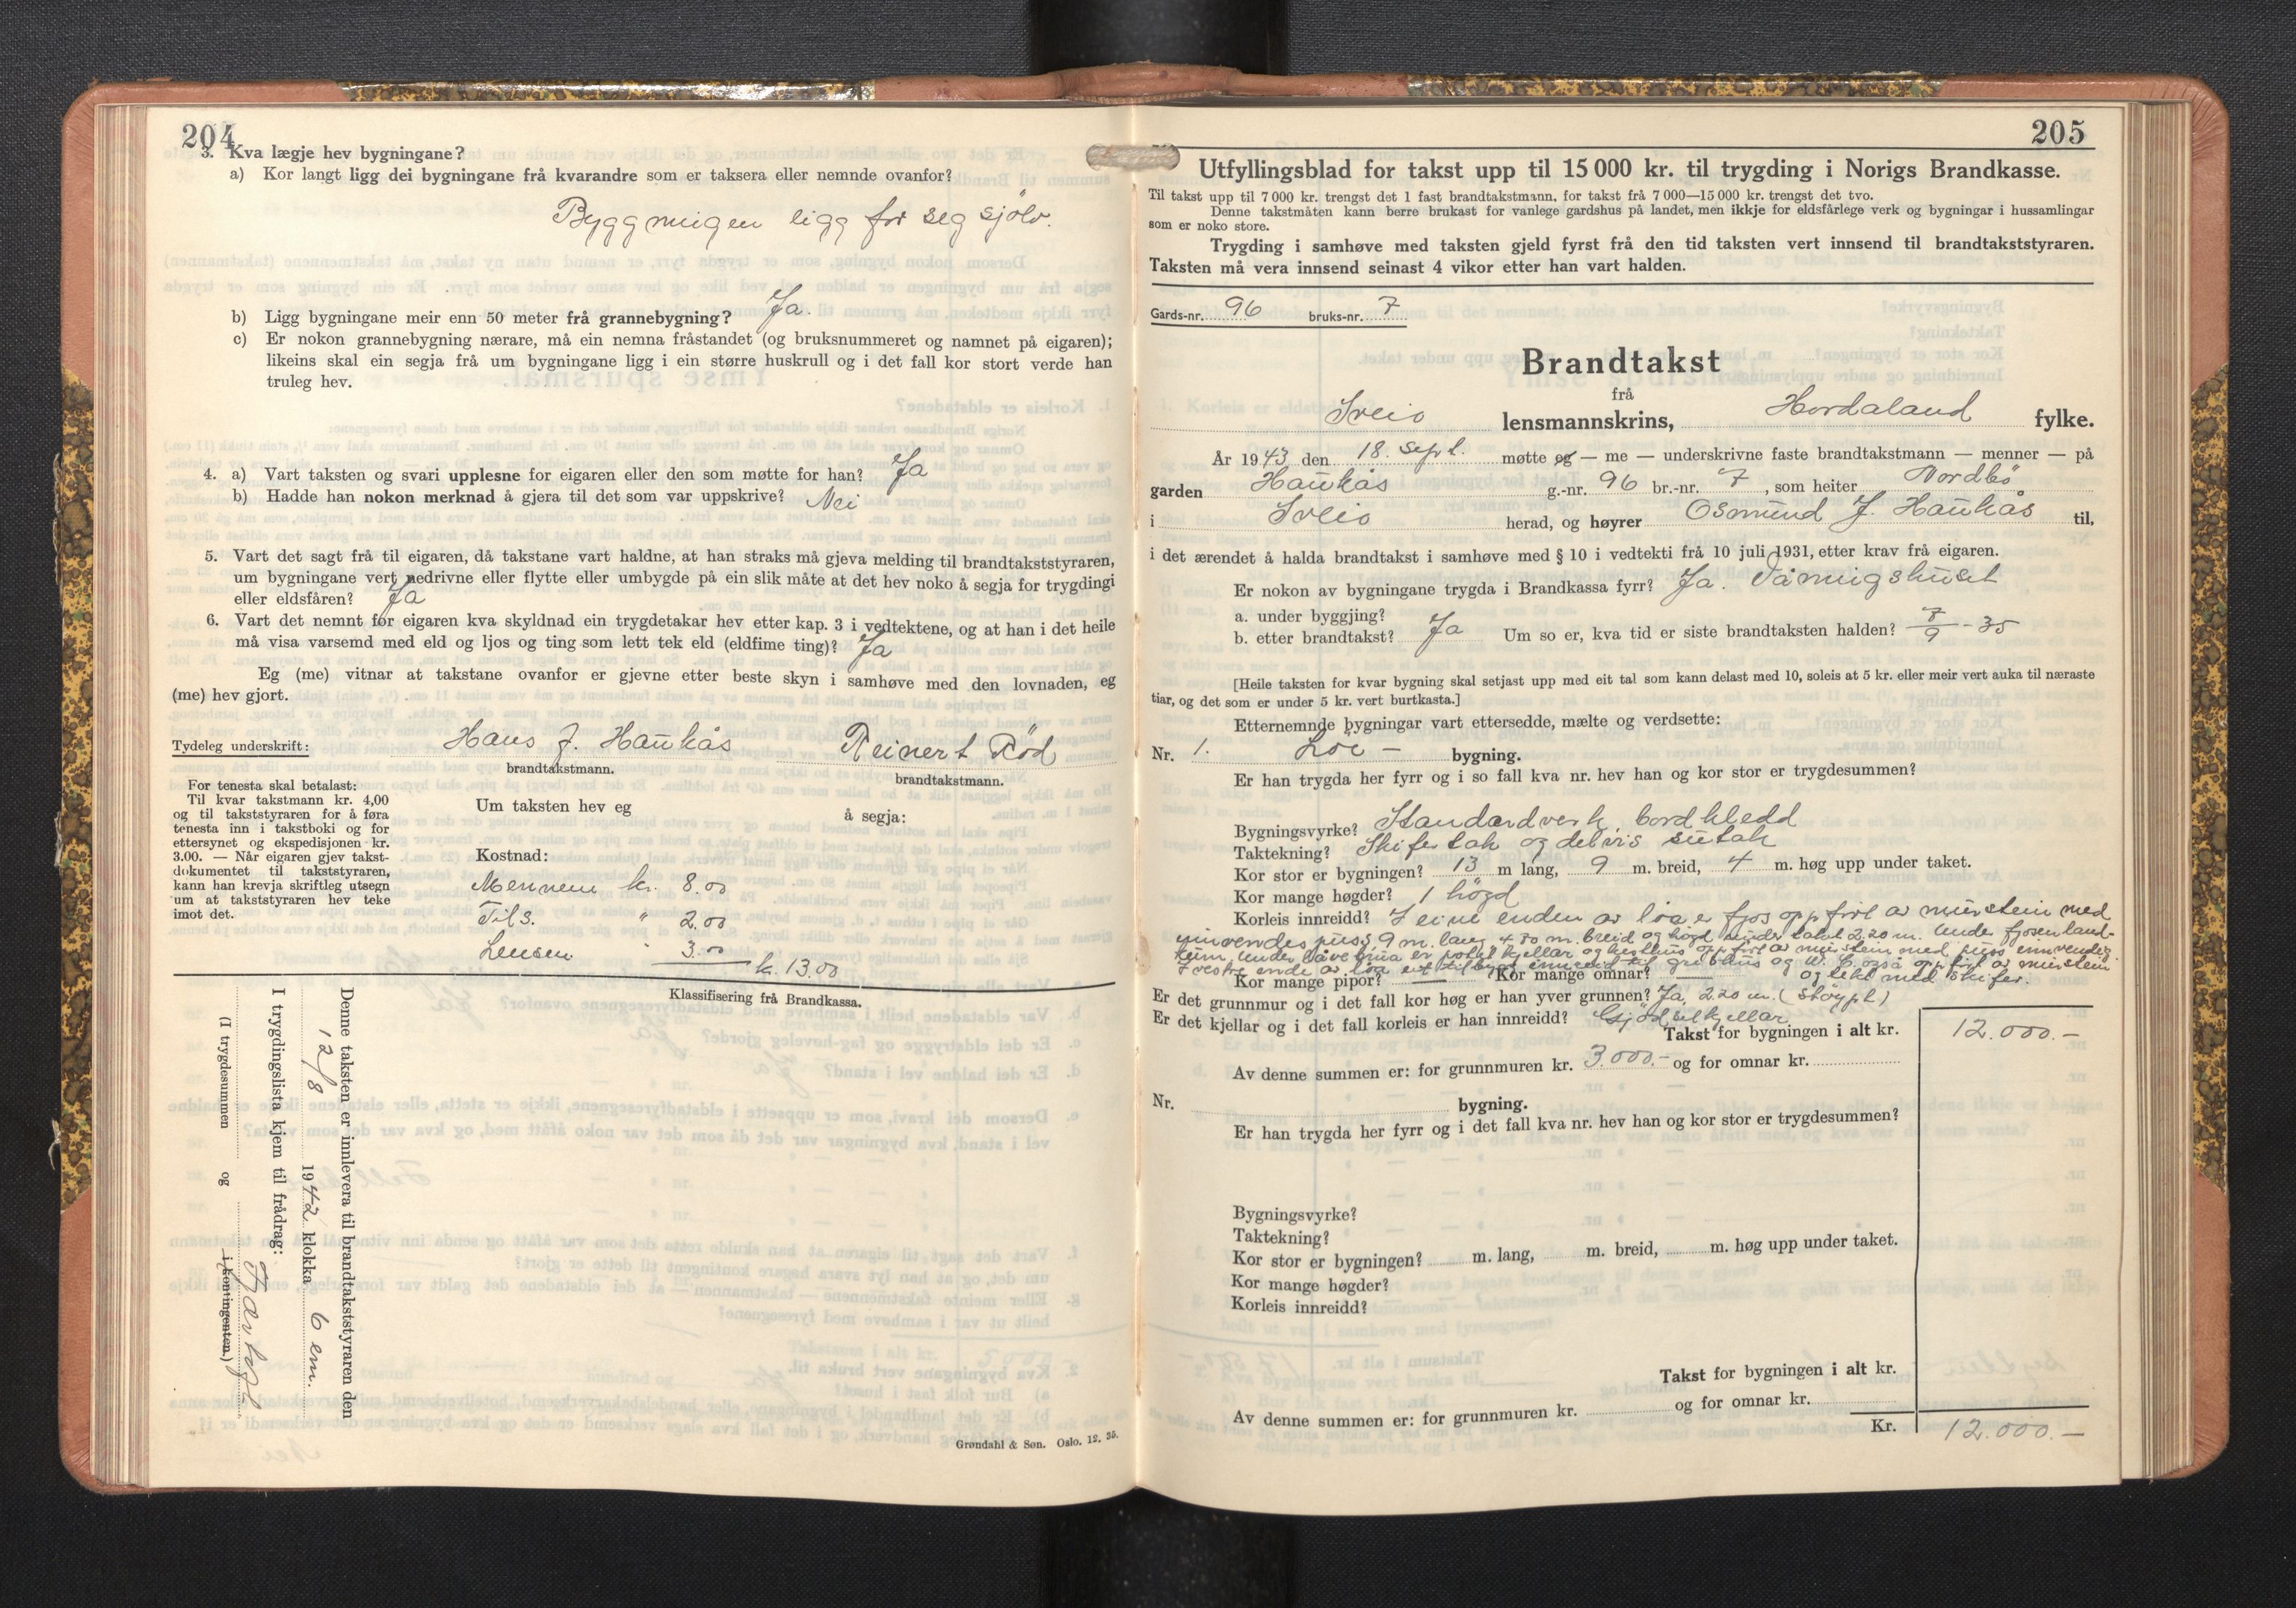 204
3. Kva lægje hev bygningane?
a) Kor langt ligg dei bygningane frå kvarandre som er taksera eller nemnde ovanfor?
Byggningen ligg for seg sjölv.
b) Ligg bygningane meir enn 50 meter frå grannebygning? Ja.
c) Er nokon grannebygning nærare, må ein nemna fråstandet (og bruksnummeret og namnet på eigaren);
likeins skal ein segja frå um bygningane ligg i ein større huskrull og i det fall kor stort verde han
truleg hev.
4. a) Vart taksten og svari upplesne for eigaren eller den som møtte for han? Ja
b) Hadde han nokon merknad å gjera til det som var uppskrive? Nei
5. Vart det sagt frå til eigaren, då takstane vart haldne, at han straks må gjeva melding til brandtakststyraren,
um bygningane vert nedrivne eller flytte eller umbygde på ein slik måte at det hev noko å segja for trygdingi
eller eldsfåren? Ja
6. Vart det nemnt for eigaren kva skyldnad ein trygdetakar hev etter kap. 3 i vedtektene, og at han i det heile
må visa varsemd med eld og ljos og ting som lett tek eld (eldfime ting)? Ja
Eg (me) vitnar at takstane ovanfor er gjevne etter beste skyn i samhøve med den lovnaden, eg
(me) hev gjort.
Tydeleg underskrift: Hans J. Haukås Reinert Röd
brandtakstmann. brandtakstmann.
For tenesta skal betalast:
Til kvar takstmann kr. 4,00
og til takststyraren for å føra
tenesta inn i takstboki og for
ettersynet og ekspedisjonen kr.
3.00. — Når eigaren gjev takst-
dokumentet til takststyraren,
kann han krevja skriftleg utsegn
um at takststyraren hev teke
imot det.
Um taksten hev eg å segja:
Kostnad:
Mennene kr. 8.00
Tils. " 2.00
Lensm. " 3.00
k. 13.00
Klassifisering frå Brandkassa.
Denne taksten er innlevera til brandtakststyraren den
12/8 1942 klokka 6 em.
I trygdingslista kjem til frådrag:
(I trygdesummen og i kontingenten.)
Grøndahl & Søn. Oslo. 12. 35.
205
Utfyllingsblad for takst upp til 15 000 kr. til trygding i Norigs Brandkasse.
Til takst upp til 7 000 kr. trengst det 1 fast brandtakstmann, for takst frå 7 000—15 000 kr. trengst det tvo.
Denne takstmåten kann berre brukast for vanlege gardshus på landet, men ikkje for eldsfårlege verk og bygningar i hussamlingar
som er noko store.
Trygding i samhøve med taksten gjeld fyrst frå den tid taksten vert innsend til brandtakststyraren.
Taksten må vera innsend seinast 4 vikor etter han vart halden.
Gards-nr. 96 bruks-nr. 7
Brandtakst
frå
Sveio lensmannskrins, Hordaland fylke.
År 1943 den 18. sept. møtte eg — me — underskrivne faste brandtakstmann — menner — på
garden Haukås g.-nr. 96 br.-nr. 7, som heiter Nordbö
i Sveio herad, og høyrer Osmund J. Haukås til,
i det ærendet å halda brandtakst i samhøve med § 10 i vedtekti frå 10 juli 1931, etter krav frå eigaren.
Er nokon av bygningane trygda i Brandkassa fyrr? Ja. Våningshuset
a. under byggjing?
b. etter brandtakst? Ja Um so er, kva tid er siste brandtaksten halden? 7/9 - 35
[Heile taksten for kvar bygning skal setjast upp med eit tal som kann delast med 10, soleis at 5 kr. eller meir vert auka til næraste
tiar, og det som er under 5 kr. vert burtkasta.]
Etternemnde bygningar vart ettersedde, mælte og verdsette:
Nr. 1. Löe - bygning.
Er han trygda her fyrr og i so fall kva nr. hev han og kor stor er trygdesummen?
Bygningsvyrke? Standardverk, bordkledd
Taktekning? Skifertak og delvis sutak
Kor stor er bygningen? 13 m lang, 9 m. breid, 4 m. høg upp under taket.
Kor mange høgder? 1 högd
Korleis innreidd? I eine enden av löa er fjos oppfört av murstein med
innvendes puss, 9 m. lang 4.70 m. breid og högd under taket 2.20 m. Under fjosen land-
kum, under låvebrua er potet kjellar og hesthus oppfört av murstein med puss innvendig.
I vestre ende av löa eit tilbygg innreid til grishus og W. C. også oppfört av murstein
og tekt med skifer.
Kor mange pipor? — Kor mange omnar? —
Er det grunnmur og i det fall kor høg er han yver grunnen? Ja, 2.20 m. (stöypt)
Er det kjellar og i det fall korleis er han innreidd? Gjödselkjellar
Takst for bygningen i alt kr. 12.000.-
Av denne summen er: for grunnmuren kr. 3.000.- og for omnar kr.
Nr. bygning.
Er han trygda her fyrr og i det fall kva nr. hev han og kor stor er trygdesummen?
Bygningsvyrke?
Taktekning?
Kor stor er bygningen? m. lang, m. breid, m. høg upp under taket.
Kor mange høgder?
Korleis innreidd?
Takst for bygningen i alt kr.
Av denne summen er: for grunnmuren kr. og for omnar kr.
Kr. 12.000.-